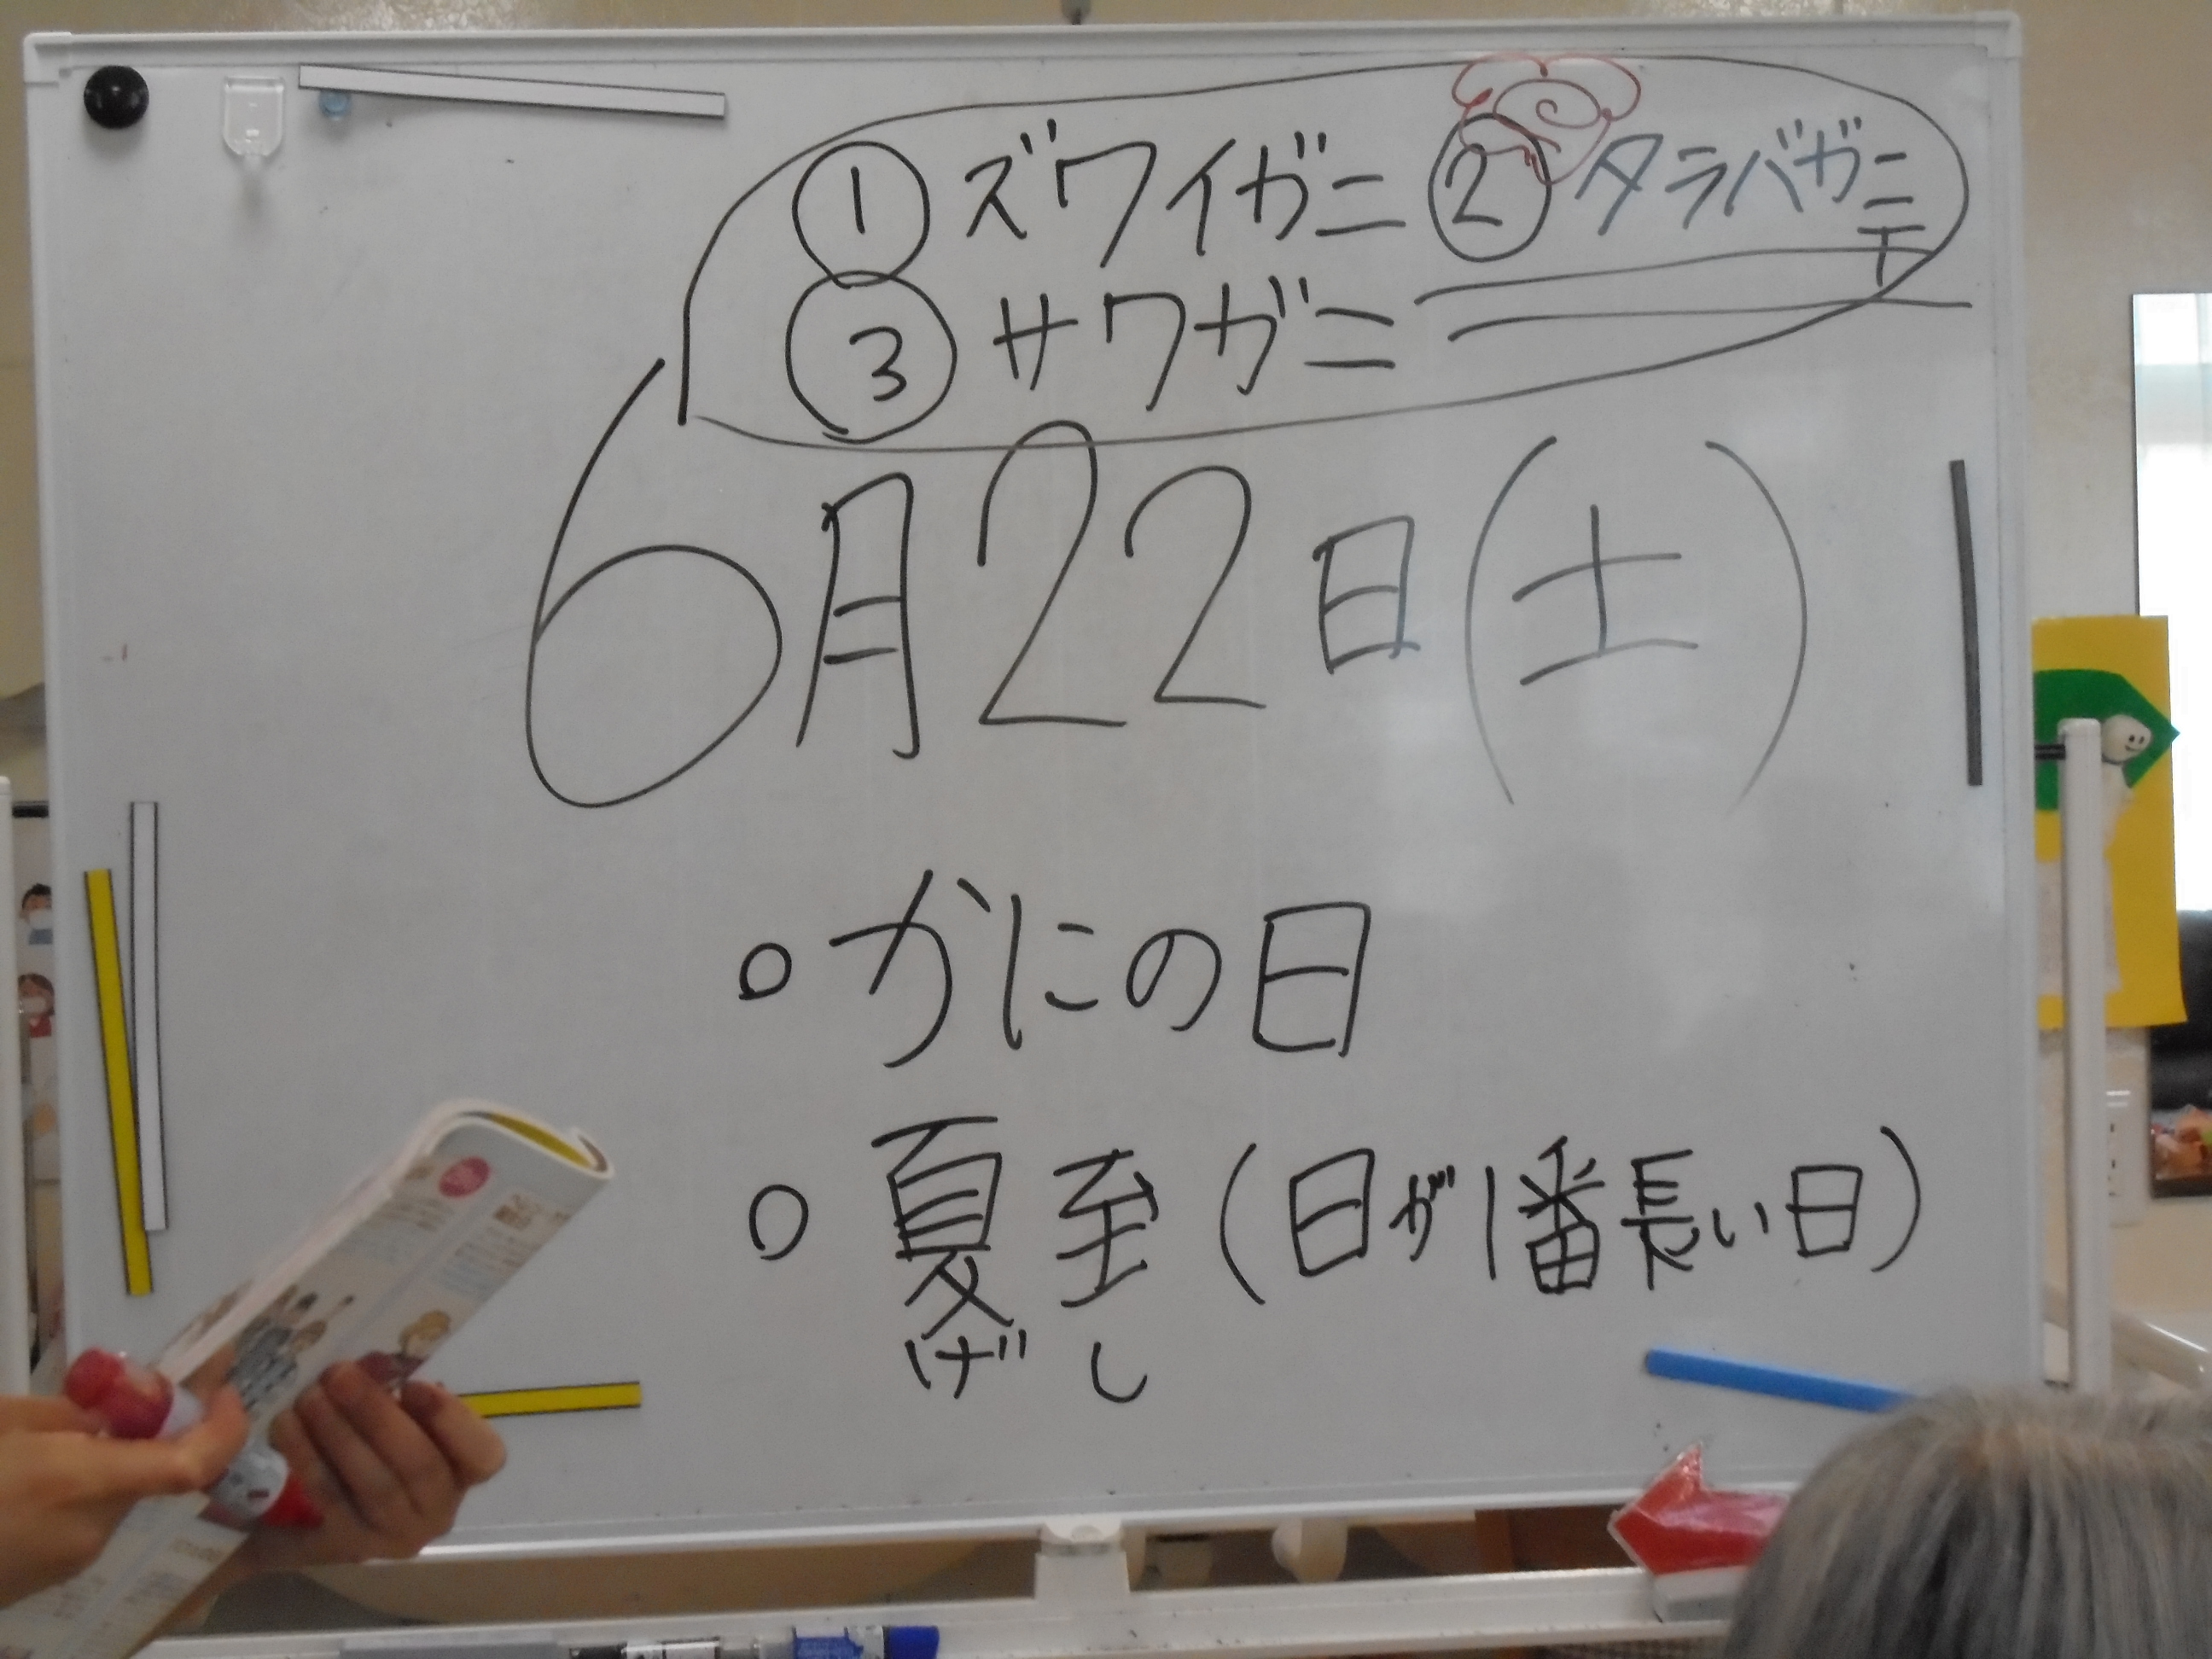 ① ズワイガニ ② タラバガニ
③ サワガニ
6月22日(土)
○ かにの日
○ 夏至(日が1番長い日)
げし